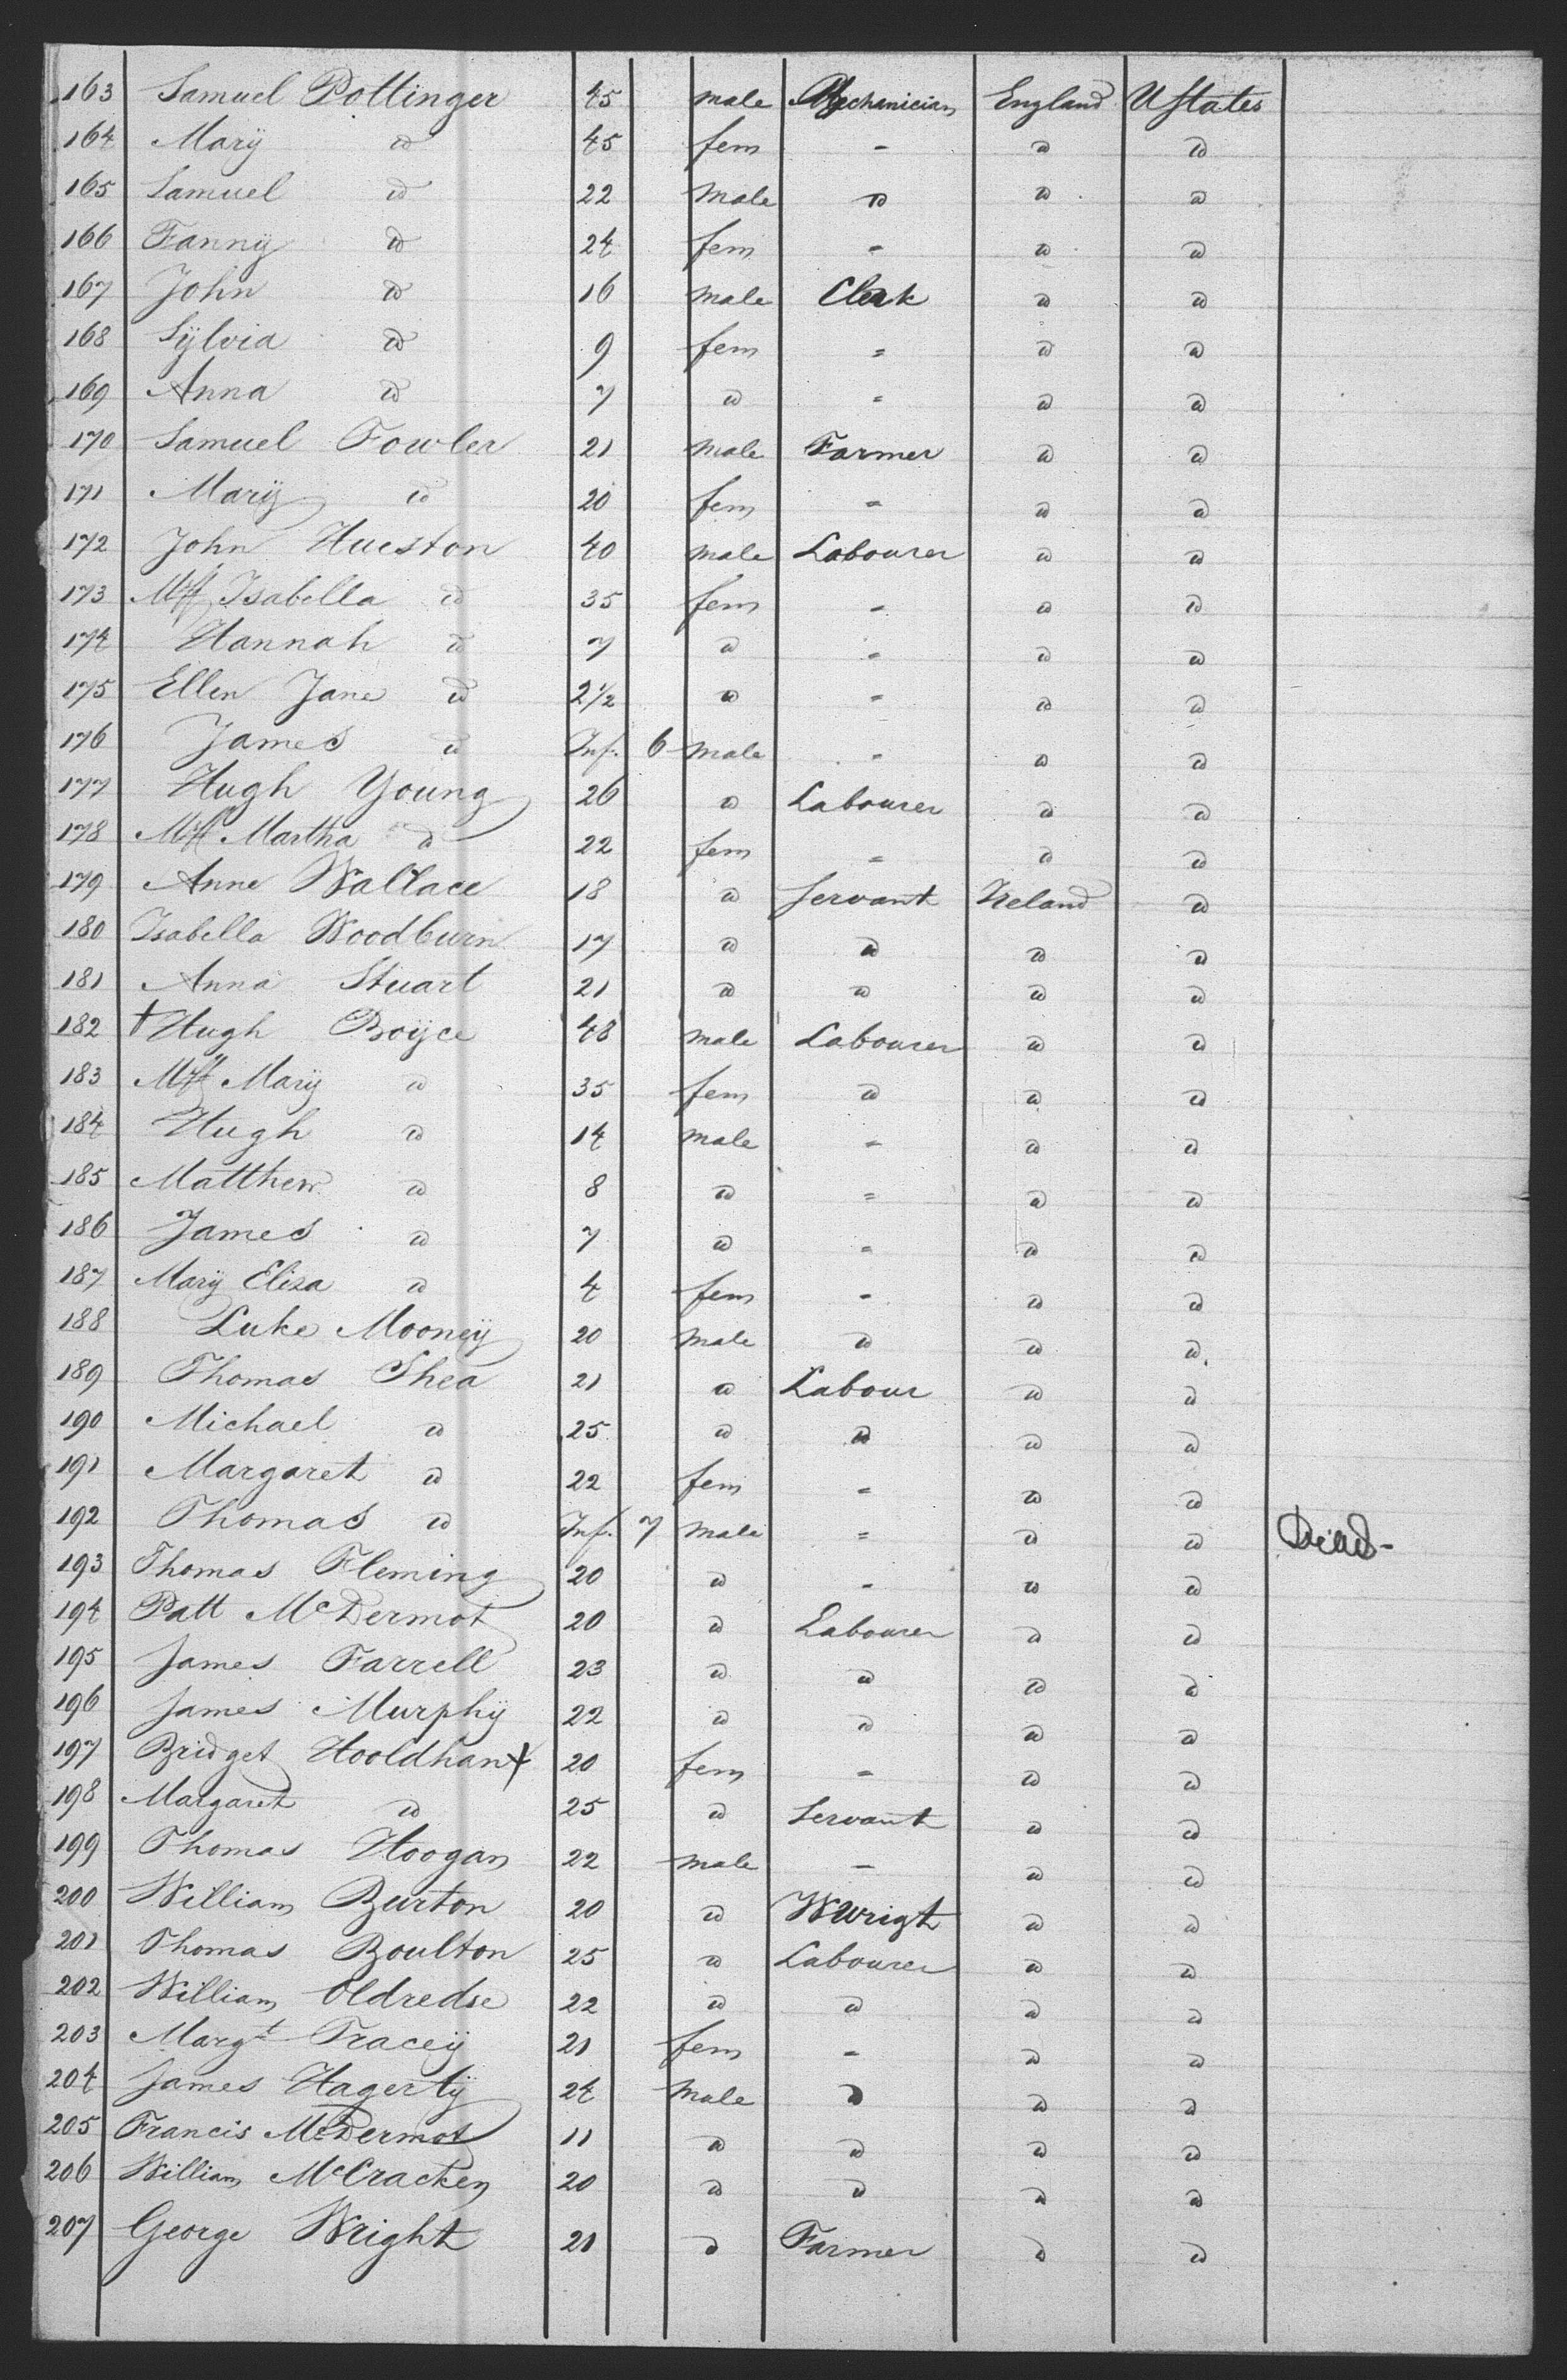 163 Samuel Pottinger 45 male Mechanician England UStates
164 Mary d 45 fem - d d
165 Samuel d 22 male d d d
166 Fanny d 24 fem - d d
167 John d 16 male Clerk d d
168 Sylvia d 9 fem = d d
169 Anna d 7 d = d d
170 Samuel Fowler 21 male Farmer d d
171 Mary d 20 fem = d d
172 John Hueston 40 male Labourer d d
173 Isabella d 35 fem - d d
174 Hannah d 7 d = d d
175 Ellen Jane d 2 1/2 d = d d
176 James d Inf. 6 male - d d
177 Hugh Young 26 d Labourer d d
178 Martha d 22 fem = d d
179 Anne Wallace 18 d Servant Ireland d
180 Isabella Woodburn 17 d d d d
181 Anna Stuart 21 d d d d
182 + Hugh Boyce 48 male Labourer d d
183 Mary d 35 fem d d d
184 Hugh d 14 male = d d
185 Matthew d 8 d = d d
186 James d 7 d = d d
187 Mary Eliza d 4 fem - d d
188 Luke Mooney 20 male d d d
189 Thomas Shea 21 d Labour d d
190 Michael d 25 d d d d
191 Margaret d 22 fem = d d
192 Thomas d Inf. 7 male = d d
193 Thomas Fleming 20 d - d d
194 Patt McDermot 20 d Labourer d d
195 James Farrell 23 d d d d
196 James Murphy 22 d d d d
197 Bridget Hooldhan + 20 fem = d d
198 Margaret d 25 d Servant d d
199 Thomas Hoogan 22 male - d d
200 William Burton 20 d WWrigt d d
201 Thomas Boulton 25 d Labourer d d
202 William Oldredse 22 d d d d
203 Margt Tracey 21 fem - d d
204 James Hagerty 24 male d d d
205 Francis McDermot 11 d d d d
206 William McCracken 20 d d d d
207 George Wright 21 d Farmer d d